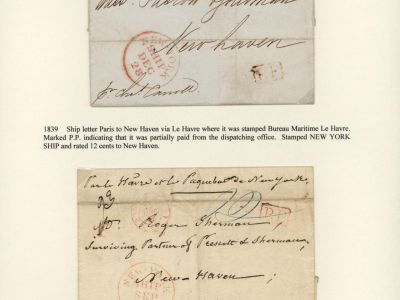 New haven
NEW
SHIP
DEC
28
P.P.
1839 Ship letter Paris to New Haven via Le Havre where it was stamped Bureau Maritime Le Havre.
Marked P.P. indicating that it was partially paid from the dispatching office. Stamped NEW YORK
SHIP and rated 12 cents to New Haven.
Par le Hâvre et le Paquebot de New York,
Mr. Roger Sherman,
Surviving Partner of Prescott & Sherman,
New-Haven;
SHIP
SEP